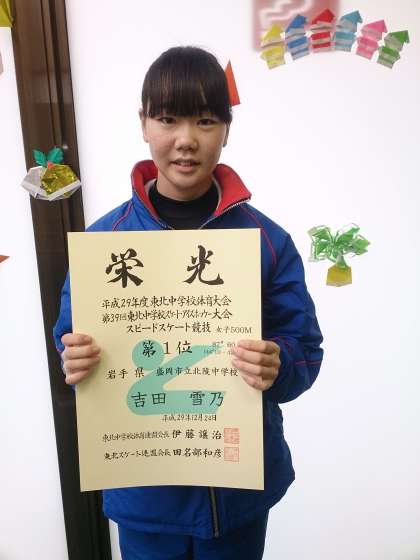 栄光
平成29年度東北中学校体育大会
第39回東北中学校スケート・アイスホッケー大会
スピードスケート競技 女子500M
第1位
岩手県 盛岡市立北陵中学校
吉田 雪乃
平成29年12月24日
東北中学校体育連盟会長 伊藤譲治
東北スケート連盟会長 田名部和彦